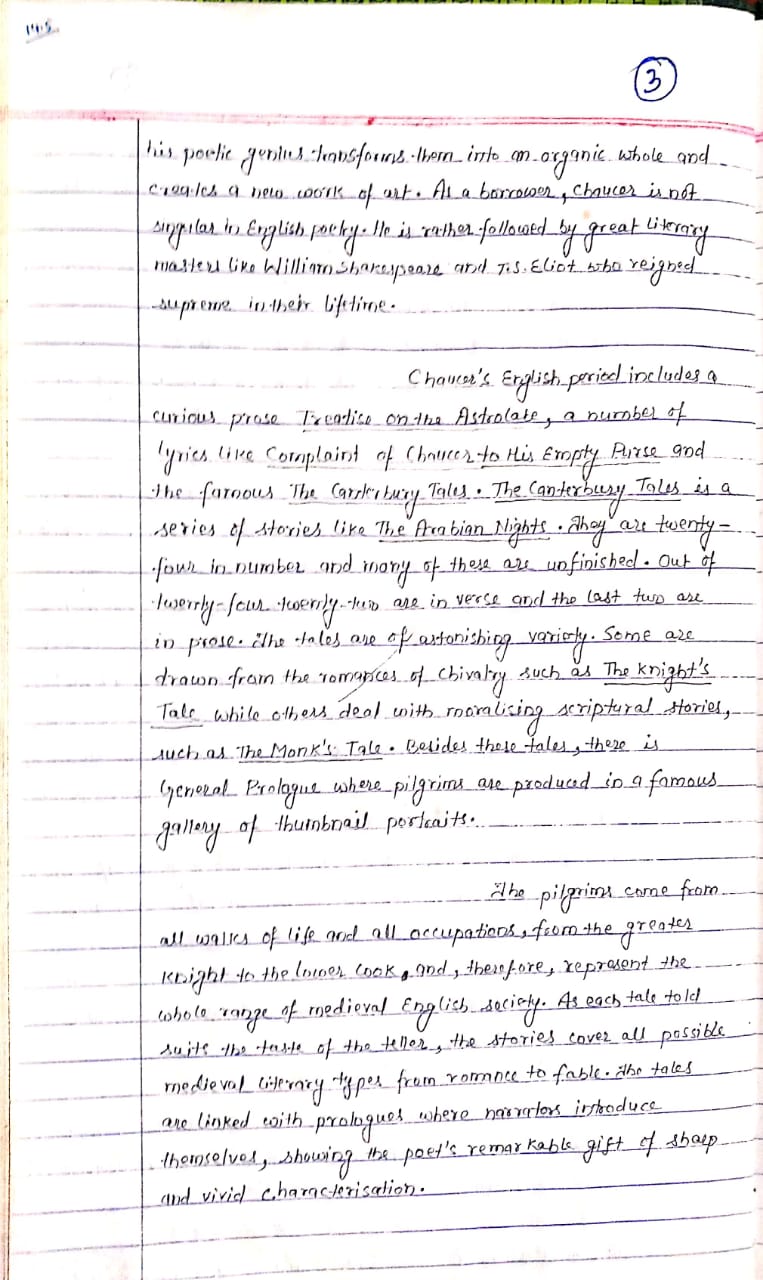 14.5
3
his poetic genius transforms them into an organic whole and
creates a new work of art. As a borrower, Chaucer is not
singular in English poetry. He is rather followed by great literary
masters like William Shakespeare and T.S. Eliot who reigned
supreme in their lifetime.
Chaucer's English period includes a
curious prose Treatise on the Astrolabe, a number of
lyrics like Complaint of Chaucer to His Empty Purse and
the famous The Canterbury Tales. The Canterbury Tales is a
series of stories like The Arabian Nights. They are twenty-
four in number and many of these are unfinished. Out of
twenty-four twenty-two are in verse and the last two are
in prose. The tales are of astonishing variety. Some are
drawn from the romances of Chivalry such as The Knight's
Tale while others deal with moralising scriptural stories,
such as The Monk's Tale. Besides these tales, there is
General Prologue where pilgrims are produced in a famous
gallery of thumbnail portraits.
The pilgrims come from
all walks of life and all occupations, from the greater
Knight to the lower Cook, and, therefore, represent the
whole range of medieval English society. As each tale told
suits the taste of the teller, the stories cover all possible
medieval literary types from romance to fable. The tales
are linked with prologues where narrators introduce
themselves, showing the poet's remarkable gift of sharp
and vivid characterisation.